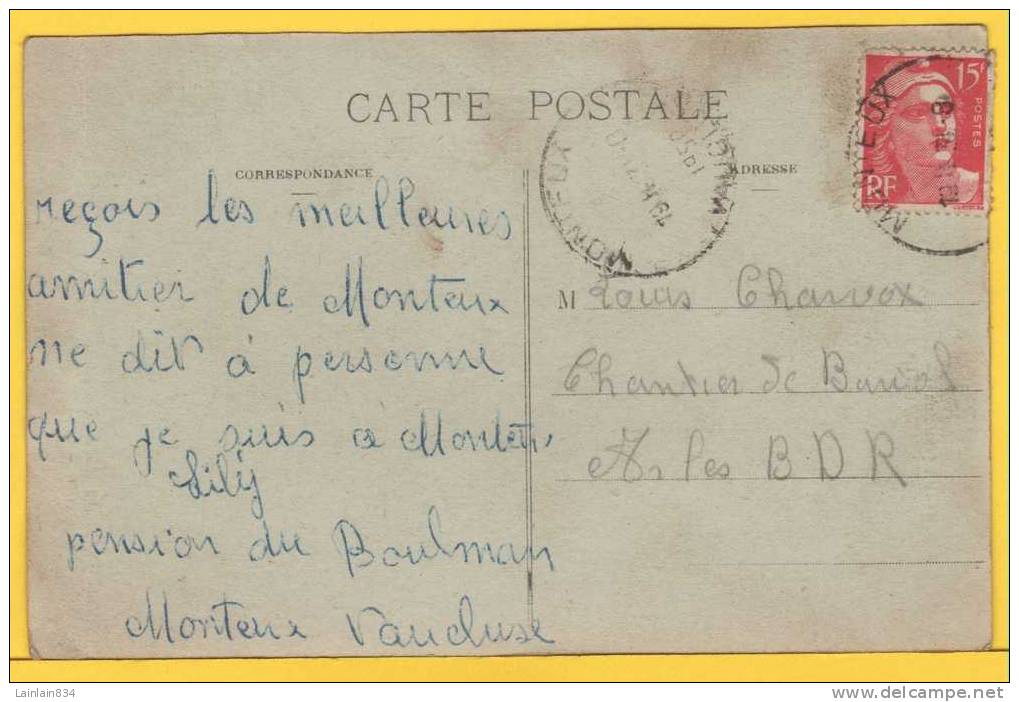 CARTE POSTALE
CORRESPONDANCE
ADRESSE
reçois les meilleures
amitier de Monteux
ne dit à personne
que je suis a Monteux
Lily
pension du Boulman
Monteux Vaucluse
M Louis Charvox
Chantier de Barriol
Arles B D R
15F
POSTES
RF
MONTEUX
VAUCLUSE
1950
MONTEUX
Lainlain834
http://www.delcampe.net